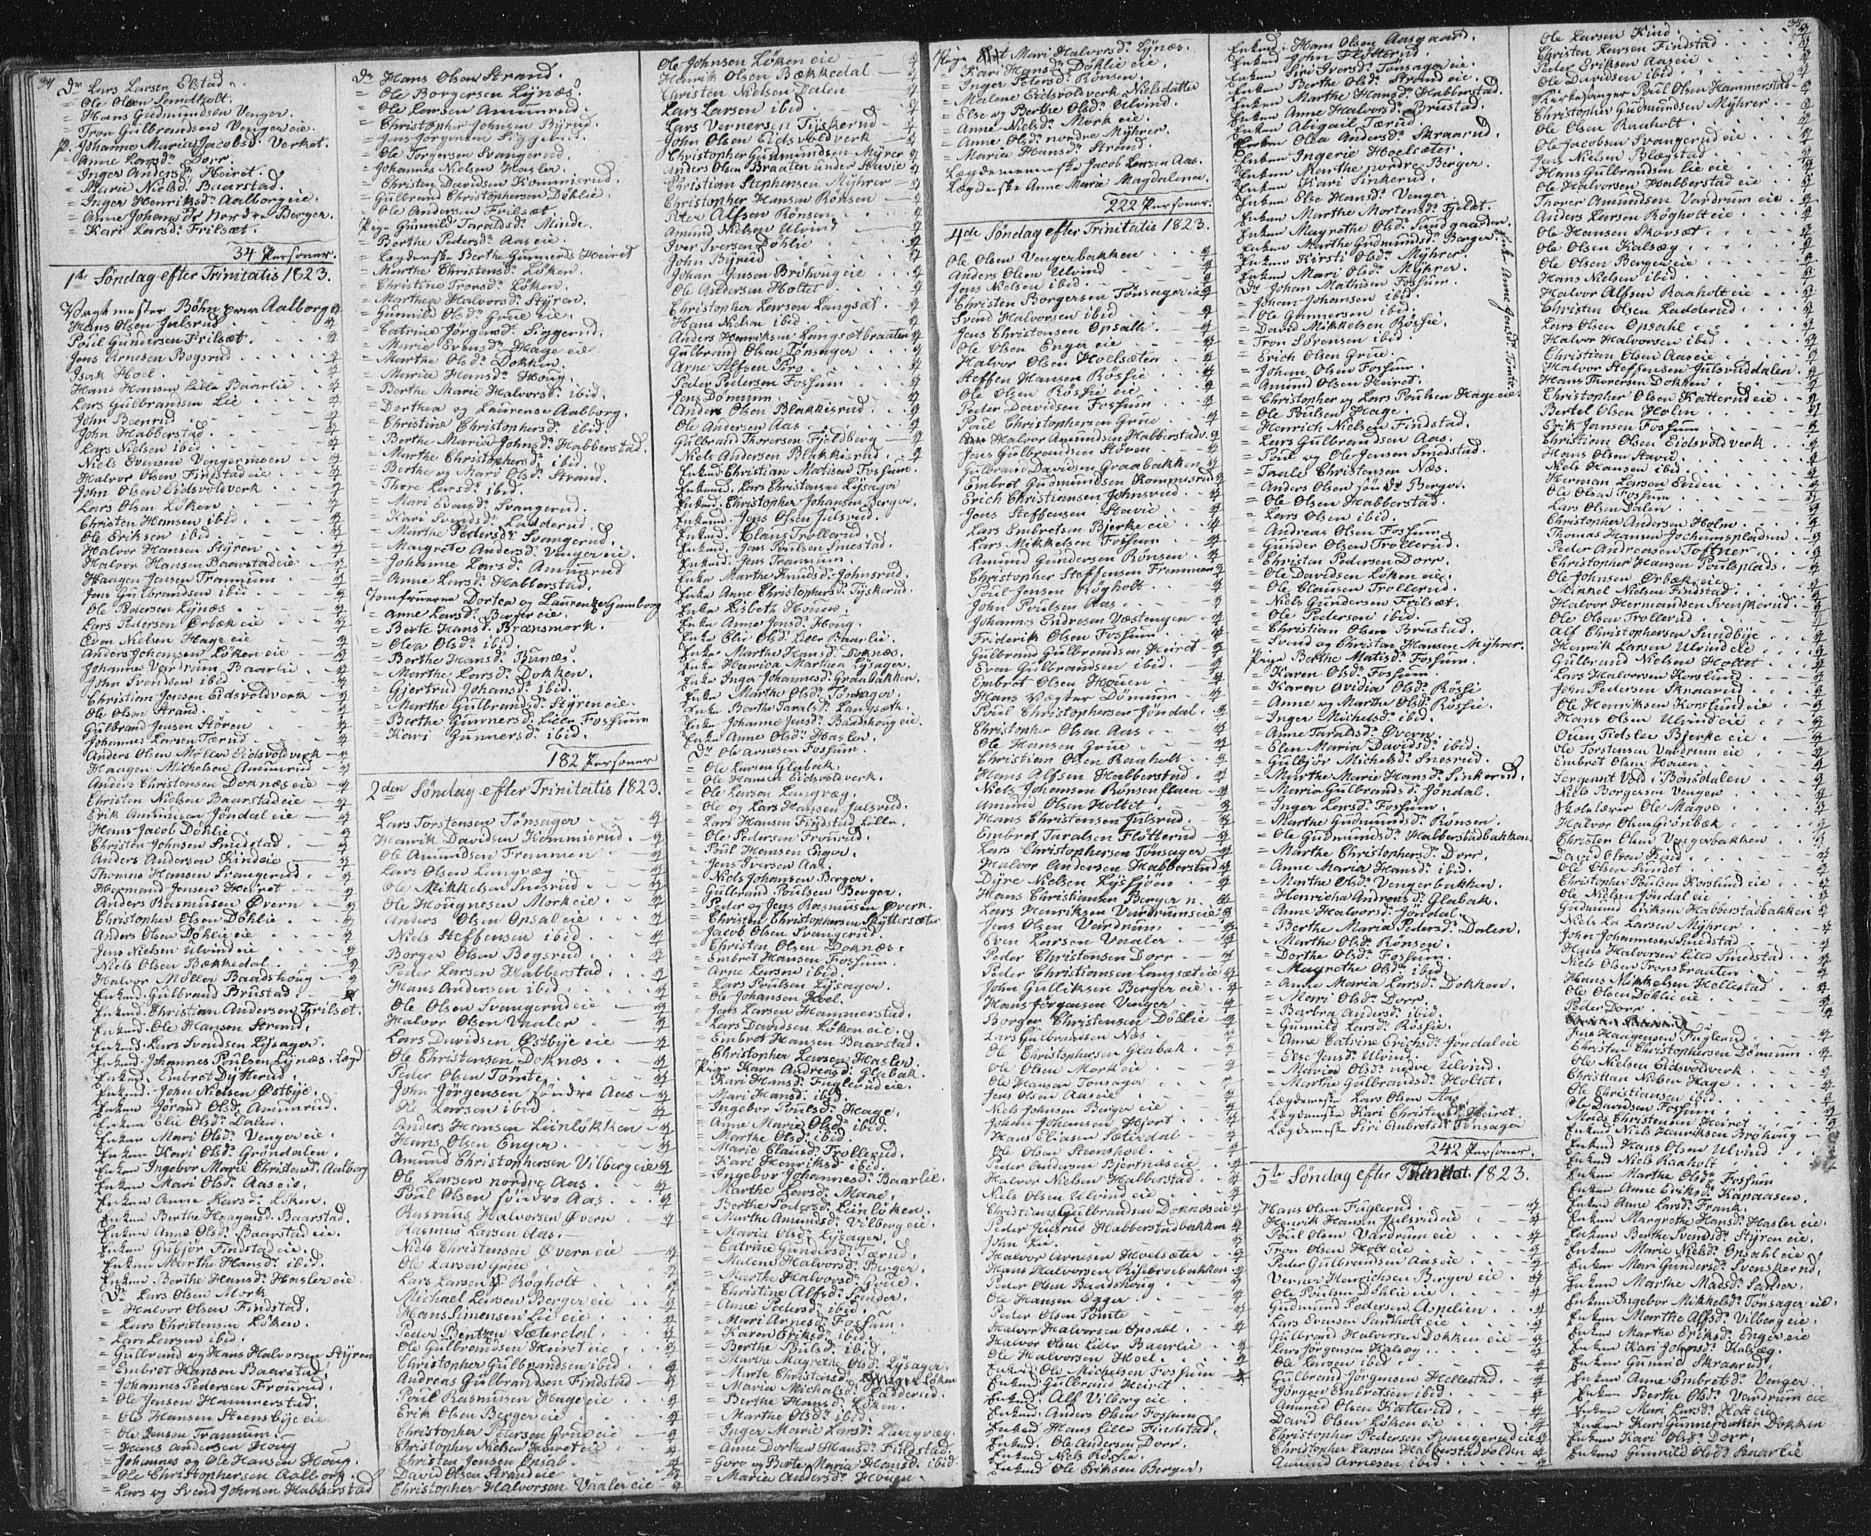 34
Dr Lars Larsen Elstad
= Ole Olsen Lundtholt.
= Hans Gudmundsen Venger.
= Tron Gulbrandsen Venger eie.
P. Johanne Maria Jacobsd. Verket.
= Anne Larsdr Dorr.
= Inger Andersdr Heiret.
= Marie Nielsd. Baarstad.
= Inger Henriksdr Aalborg eie.
= Anne Johansdr Nordre Berger.
= Kari Larsdr Frilsæt.
34 Personer.
1ste Söndag efter Trinitatis 1823.
Vagtmester Böhn paa Aalborg
Hans Olsen Julsrud
Poul Gundersen Frilsæt.
Jens Arnesen Bogsrud
Isak Hoel
Hans Hansen Lille Baarlie
Lars Gulbrandsen Lie
John Beenrud
John Habberstad
Lars Nielsen ibid
Niels Evensen Vengermoen
Halvor Olsen Findstad eie
John Olsen Eidsvoldverk
Lars Olsen Löken
Christen Hansen ibid
Ole Eriksen ibid
Halvor Hansen Styren
Halvor Hansen Baarstad eie
Haagen Jensen Trannum
Jens Gulbrandsen ibid
Ole Pedersen Lynæs
Lars Pedersen Ørbæk eie
Even Nielsen Hage eie
Anders Johansen Löken eie
Johannes Vardrum Baarlie
John Svendsen ibid
Christian Jensen Eidsvoldverk
Ole Olsen Strand
Gulbrand Jensen Stören
Johannes Larsen Tærud
Anders Olsen Möller Eidsvoldverk
Haagen Michelsen Amunrud
Anders Christensen Doknæs eie
Christen Nielsen Baarstad eie
Erik Amundsen Jöndal eie
Hans Jacob Döhlie
Christen Johnsen Smedstad
Anders Andersen Kind eie
Thomas Hansen Svangerud
Hermand Jensen Heiret
Anders Rasmusen Øvern
Christopher Olsen Döhlie
Anders Olsen Döhlie eie
Jens Nielsen Ulvind eie
Niels Olsen Bækkedal
Halvor Möller Baadshaug
Enkmd. Gulbrand Brustad
Enkmd. Christian Andersen Frilset.
Enkmd. Ole Hansen Strand.
Enkmd. Lars Svendsen Lysager.
Enkmd. Johannes Poulsen Lynæs. Lægd
Enkmd. Embret Dytterud.
Enkmd. John Nielsen Østbye.
Enken Jörand Olsdr Amunrud.
Enken Eli Olsdr Dalen.
Enken Mari Olsdr Venger eie.
Enken Kari Olsdr Gröndalen.
Enken Ingebor Marie Christensdr Aalborg
Enken Mari Olsdr Aas eie.
Enken Anne Larsdr Löken.
Enken Berthe Haagensdr Baarstad.
Enken Anne Olsdr Baarstad eie.
Enken Gubjör Findstad eie.
Enken Marthe Hansdr ibid.
Enken Berthe Hansdr Hasler eie.
Dr Lars Olsen Mork
= Halvor Olsen Findstad.
= Lars Christensen Löken.
= Lars Larsen ibid.
= Gulbrand og Hans Halvorsen Styren
= Embret Hansen Baarstad.
= Johannes Pedersen Frourud.
= Ole Jensen Hammerstad.
= Ole Hansen Steensbye eie
= Ole Jensen Trannum.
= Hans Andersen Houg
= Johannes og Ole Hansen Houg.
= Ole Christophersen Aalborg.
= Lars og Svend Johnsen Habberstad
Dr Hans Olsen Strand.
= Ole Borgersen Lynæs.
= Ole Larsen Amunrud.
= Christopher Johnsen Byrud.
= Jens Jörgensen Siggerud.
= Ole Torgersen Svangerud.
= Johannes Nielsen Hasler.
= Christen Davidsen Kommerud.
= Gulbrand Christophersen Döhlie.
= Ole Andersen Frilsæt.
Pige Gunnild Taraldsd. Minde.
= Berthe Pedersdr Aas eie.
= Lægdenske Berthe Gunnersd Heiret
= Marthe Christensdr Löken.
= Christine Tronsdr Löken.
= Marthea Halvorsd Styren.
= Gunnild Olsdr Grue eie.
= Catrine Jörgensd. Siggerud.
= Marie Evensdr Hage eie
= Marthe Olsdr Dokken.
= Maria Hansdr Houg.
= Berthe Marie Halvorsd. ibid.
= Dorthea og Laurense Aalborg.
= Christine Christophersd. ibid.
= Berthe Maria Johnsdr Habberstad.
= Marthe Christophersd. ibid.
= Berthe og Mari Olsdr Strand.
= Thore Larsd. ibid.
= Mari Evensdr Svangerud.
= Kari Svendsdr Ladderud.
= Marthe Pedersdr Svangerud.
= Magrete Andersdr Venger eie.
= Johanne Larsdr Amunrud
= Anne Larsdr Habberstad
Jomfruerne Dortea og Laurentze Gamborg
= Anne Larsdr Berger eie.
= Berte Hansdr Brænsmork.
= Olea Olsdr ibid.
= Berthe Hansdr Bunæs.
= Marthe Larsdr Dokken.
= Gjertrud Johansd. ibid.
= Marthe Gulbrandsdr Styren eie.
= Berthe Gunnersdr Lille Fossum
= Kari Gunnersdr ibid.
182 Personer
2den Söndag efter Trinitatis 1823.
Lars Torstensen Tönsager
Henrik Davidsen Kommerud
Ole Amundsen Fremmen
Lars Olsen Langvæg
Ole Mikkelsen Snesrud
Ole Hougnesen Mork eie
Anders Olsen Opsal eie
Niels Steffensen ibid
Borger Olsen Bogsrud
Peder Larsen Habberstad
Hans Andersen ibid
Ole Olsen Svangerud eie
Halvor Olsen Vaaler
Lars Davidsen Østbye eie
Ole Christensen Doknæs
Peder Olsen Tömte
John Jörgensen söndre Aas
Ole Larsen ibid
Anders Hansen Leinlökken
Hans Olsen Enger
Amund Christophersen Vilberg eie
Ole Larsen nordre Aas
Poul Olsen söndre Aas
Rasmus Halvorsen Øvern
Rasmus Larsen Aas
Niels Christensen Øvern eie
Ole Larsen Grue
Lars Larsen Rögholt
Michael Larsen Berger eie
Hans Simensen Lie eie
Peder Bentzen Sæterdal
Ole Gulbrandsen Heiret eie
Christopher Gulbrandsen ibid
Andreas Gulbrandsen Findstad
Poul Rasmusen Hage eie
Erik Olsen Berger eie
Christopher Petersen Grue eie
Christopher Nielsen Heiret eie
Christen Jensen Opsal
David Olsen Strand eie
Christopher Halvorsen Vaaler eie
Ole Johnsen Löken eie
Henrik Olsen Bækkedal
Christen Nielsen Dalen
Lars Larsen ibid
Lars Vernersen Tyskerud
John Olsen Eidsvoldverk
Christopher Gudmundsen Myrer
Anders Olsen Braaten under Stavie
Christian Stephensen Myhrer
Christopher Hansen Rönsen
Peter Alfsen Rönsen
Amund Nielsen Ulvind
Iver Iversen Döhlie
John Byrud
Johan Jensen Bröhoug eie
Ole Andersen Holtet
Christopher Larsen Langsæt
Hans Nielsen ibid
Anders Henriksen Langsætbraaten
Gulbrand Olsen Tönsager
Arne Alfsen Piro
Peder Pedersen Fossum
Jens Dönnum
Anders Olsen Blakkisrud
Ole Andersen Aas
Gulbrand Thoresen Fjeldberg
Niels Andersen Blakkisrud
Enkmd. Christian Matisen Fossum
Enkemd. Lars Christensen Lysager
Enkmd. Christopher Johansen Berger.
Enkmd. Jens Olsen Julsrud.
Enkmd. Claus Trollerud.
Enkmd. Jens Poulsen Smestad.
Enkmd. Jens Trannum.
Enke Marthe Knudsdr Johnsrud.
Enke Anne Christophersdr Tyskerud.
Enke Lisbeth Houen.
Enke Anne Jensdr Houg.
Enke Elie Olsdr Liller Baarlie.
Enke Marthe Hansdr Doknæs.
Enke Henrica Marthea Lysager.
Enke Inger Johannesd. Graabakken.
Enke Marthe Olsdr Tönsager.
Enke Berthe Taralsdr Langsæth.
Enke Johanne Jensdr Baadshoug eie.
Enke Anne Olsdr Hasler.
Dr Ole Arnesen Fossum.
= Ole Larsen Glabak.
= Ole Hansen Eidsvoldverk.
= Ole Larsen Langvæg.
= Ole og Lars Hansen Julsrud.
= Lars Hansen Findstad Lille
= Ole Pedersen Frourud.
= Poul Hansen Enger.
= Jens Iversen Aas
= Niels Johansen Berger.
= Gulbrand Poulsen Berger.
= Peder og Jens Rasmusen Øvern.
= Christen Christophersen Skyttersæter
= Jacob Olsen Svangerud.
= Christen Olsen Doknæs.
= Embret Hansen Fossum.
= Arne Larsen ibid.
= Lars Poulsen Lysager.
= Ole Johansen Hoel.
= Jens Larsen Hammerstad.
= Lars Davidsen Löken eie.
= Embret Hansen Baarstad.
= Christopher Larsen Hasler.
Pige Karn Andreasdr Glabak.
= Kari Hansdr Fuglerud eie.
= Mari Hansdr ibid.
= Ingebor Poulsdr Hage.
= Anne Maria Olsdr ibid.
= Marthe Olsdr ibid.
= Marie Clausdr Trollerud.
= Kari Henriksdr ibid.
= Ingebor Johannesdr Baarlie.
= Marthe Larsdr Mane.
= Berthe Pedersdr Leinlöken.
= Marthe Amundsdr Vilberg eie.
= Maria Olsdr Lysager.
= Catrine Gundersdr Tærud.
= Malene Halvorsdr Berger.
= Marthe Halvorsdr Grue.
= Christine Alfsdr Sonder.
= Anne Pedersdr ibid.
= Mari Arnesdr Fossum.
= Karen Eriksdr ibid.
= Berthe Poulsdr ibid.
= Marthe Magrethe Olsdr Lysager.
= Marte Christensd. Löken
= Maria Michelsdr Ladderud.
= Berthe Hansdr Löken.
= Marthe Olsdr ibid.
= Inger Marie Larsdr Langvæg.
= Anne Dorthea Hansdr Fildstad.
= Gore og Berte Maria Hansd. ibid.
= Maria Andersdr Houen
35
Pige Mari Halvorsdr Lynæs.
= Kari Hansdr Döhlie eie.
= Inger Petersdr Rönsen.
= Malene Eidsvoldverk Nielsdatter
= Else og Berthe Olsdr Ulvind.
= Anne Nielsdr Mork eie.
= Anne Olsdr nordre Myhrer.
= Maria Hansdr Strand.
Lægdemand Jacob Larsen Aas.
Lægdenske Anne Maria Magdalena.
222 Personer.
4de Söndag efter Trinitatis 1823.
Ole Olsen Vengerbakken
Anders Olsen Ulvind
Jens Nielsen ibid
Christen Borgersen Tönsager eie
Svend Halvorsen ibid
Jens Christensen Opsahl
Ole Olsen Enger eie
Halvor Olsen Hoelsæter
Steffen Hansen Rösie
Ole Olsen Rösie eie
Peder Davidsen Fossum
Poul Christophersen Grue
Halvor Amundsen Habberstadv.
Jens Gulbrandsen Stören
Gulbrand Davidsen Graabakken
Embret Gudmundsen Kommerud
Erich Christiansen Johnsrud
Jens Steffensen Stavie
Lars Embretsen Bjerke eie
Lars Mikkelsen Fossum
Amund Gundersen Rönsen
Christopher Staffensen Fremmen
Poul Jensen Rögholt
John Poulsen Aas
Johannes Endresen Væstengen
Friderik Olsen Fossum
Gulbrand Gulbrandsen Heiret
Even Gulbrandsen ibid
Embret Olsen Houen
Hans Vægter Dönnum
Poul Christophersen Jöndal
Christopher Olsen Aas
Ole Hansen Grue
Christian Olsen Raaholt
Hans Alfsen Habberstad
Niels Johansen Rönsenflaen
Amund Olsen Holtet
Hans Christensen Julsrud
Embret Taralsen Flotterud
Lars Christophersen Tönsager
Halvor Andersen Habberstad
Dyre Nielsen Lysfjöen
Hans Christiansen Berger n.
Lars Henriksen Vardrum eie
Jens Olsen Vardrum
Even Larsen Vaaler
Peder Christensen Dorr
Peder Christiansen Langsæt eie
John Gulliksen Berger eie
Hans Jörgensen Venger
Borger Christensen Döhlie
Lars Gulbrandsen Næs
Ole Christophersen Glabak
Ole Olsen Mork eie
Ole Hansen Tönsager
Jens Olsen Aas eie
Niels Johnsen Berger eie
Johan Johansen Hjort
Hans Eliasen Sæterdal
Ole Olsen Steenshoel
Peder Andersen Bjertnæs eie
Halvor Nielsen Habberstad
Niels Olsen Ulvind eie
Christian Gulbrandsen Doknæs eie
Peder Jensrud Habberstadbakken
John Lie
Halvor Arnesen Hoelsæter
Hans Halvorsen Risebroebakken
Peder Olsen Baadshaug
Ole Hansen Egger
Peder Olsen Tömte
Halvor Halvorsen Opsahl
Halvor Olsen Lille Baarlie
Ole Halvorsen Hoel
Enkmd. Ole Michelsen Fossum
Enkmd. Gulbrand Heiret
Enkmd. Alf Vilberg eie
Enkmd. Anders Olsen Fossum
Enkmd. Hans Lille Findstad.
Enkmd. Ole Andersen Dorr.
Enkmd. Niels Rösie.
Enkmd. Ole Eriksen Berger.
Enkmd. Hans Olsen Aasgaard.
Enkmd. John Flötterud.
Enken Siri Iversdr Tönsager eie.
Enken Berthe Olsdr Strand eie.
Enken Marthe Hansdr Habberstad.
Enken Anne Halvorsdr Brustad.
Enken Abigail Tærud.
Enken Olea Andersdr Skraarud.
Enken Ingerie Hoelsæter.
Enken Marthe nordre Berger.
Enken Kari Sinkerud.
Enken Else Hansdr Venger.
Enken Marthe Mortensdr Fjeldet.
Enken Magrethe Olsdr Sundgaarden.
Enken Marthe Gudmundsdr Berger.
Enken Kirsti Olsdr Myhrer.
Enken Mari Olsdr Myhrer.
Enke Anne Jensdr Tömte
Dr Johan Mathisen Fossum.
= Johan Johansen ibid.
= Ole Gunnersen ibid.
= David Mikkelsen Rösie.
= Tron Sörensen ibid.
= Erich Olsen Grue.
= Johan Olsen Fossum.
= Amund Olsen Heiret.
= Christopher og Lars Poulsen Hage eie.
= Ole Poulsen Hage.
= Henrich Nielsen Findstad.
= Lars Gulbrandsen Aas.
= Poul og Ole Jensen Smedstad.
= Taale Christensen Næs.
= Anders Olsen söndr Berger.
= Ole Olsen Habberstad
= Lars Olsen ibid
= Andreas Olsen Fossum
= Gunder Olsen Trollerud.
= Christen Pedersen Dorr.
= Ole Davidsen Löken eie.
= Ole Clausen Trollerud.
= Niels Gundersen Frilsæt.
= Ole Pedersen ibid.
= Christian Olsen Brustad.
= Svend og Christen Hansen Myhrer.
Pige Berthe Matisdr Fossum.
= Karen Olsdr Fossum.
= Karen Ovidia Olsdr Rösie
= Anne og Marthe Olsdr Rösie.
= Inger Michelsdr ibid.
= Anne Taralsdr Øvern.
= Elen Maria Davidsdr ibid.
= Gulbjör Michelsdr Snesrud.
= Marthe Marie Hansdr Sinkerud.
= Maria Gulbrandsdr Jöndal.
= Inger Larsdr Fossum.
= Marthe Gudmundsdr Rönsen.
= Ole Gudmundsdr Habberstadbakken
= Marthe Christophersdr Dorr.
= Anne Maria Hansdr ibid.
= Marthe Olsdr Vengerbakken.
= Henriche Andreasdr Glabak.
= Anne Halvorsdr Jöndal.
= Berthe Maria Pedersdr Dalen.
= Marthe Olsdr Rönsen.
= Dorthe Olsdr Fossum.
= Magrethe Olsdr ibid
= Anne Maria Larsdr Dokken.
= Mari Olsdr Dorr.
= Barbra Andersdr ibid.
= Gunnild Larsdr Rösie.
= Anne Catrine Erichsdr Jöndal eie
= Else Jensdr Ulvind.
= Maria Olsdr nedre Ulvind.
= Marthe Gulbrandsdr Holtet.
Lægdemand Lars Olsen Aas
Lægdenske Kari Christensdr Heiret.
Lægdenske Siri Embretsdr Tönsager
242 Personer.
5te Söndag efter Trinitat. 1823.
Hans Olsen Fuglerud
Henrik Hansen Julsrud eie
Poul Olsen Vardrum eie
Tron Olsen Holt eie
Peder Gulbrandsen Aas eie
Verner Henrichsen Berger eie
Ole Poulsen Döhlie eie
Gudmund Pedersen Aspelien
Lars Evensen Sandholt eie
Gulbrand Halvorsen Dokken eie
Lars Jörgensen Kalsæg
Ole Larsen ibid
Gulbrand Jörgensen Hellestad
Jörgen Embretsen ibid
Amund Olsen Katterud
David Olsen Löken eie
Christopher Petersen Svangerud eie
Christopher Larsen Habberstadvolden
Amund Arnesen ibid
Ole Larsen Kind
Christen Larsen Findstad
Peder Eriksen Aas eie
Ole Davidsen ibid
Kirkesanger Poul Olsen Hammerstad
Christopher Gudmundsen Myhrer
Ole Olsen Raaholt
Ole Jacobsen Svangerud eie
Jens Nielsen Blægstad
Hans Gulbrandsen Lie eie
Ole Halvorsen Habberstad eie
Thorer Amundsen Vardrum eie
Anders Larsen Rögholt eie
Hans Hansen Skovsæt
Ole Olsen Kalsæg
Ole Olsen Berger eie
Hans Nielsen ibid
Halvor Alfsen Raaholt eie
Christen Olsen Ladderud
Lars Olsen Opsahl
Halvor Halvorsen ibid
Christian Olsen Aas eie
Halvor Steffensen Julsruddalen
Hans Thoresen Dokken
Christopher Olsen Katterud eie
Bertel Olsen Holm
Erik Jensen Fossum
Christian Olsen Eidsvoldverk
Hans Olsen Stavie
Niels Hansen ibid
Herman Larsen Enden
Ole Olsen Fossum
Lars Olsen Dalen
Christopher Andersen Holm
Thomas Hansen Jochumspladsen
Peder Andreasen Toftner
Christopher Hansen Poulsplads
Ole Johnsen Ørbæk eie
Mikkel Nielsen Findstad
Halvor Hermandsen Svenskerud
Ole Olsen Trollerud
Alf Christophersen Sundbye
Henrik Larsen Ulvind eie
Gulbrand Nielsen Holtet
Lars Halvorsen Korslund
John Pedersen Skraarud
Ole Henriksen Korslund eie
Hans Olsen Ulvind eie
Ouen Tidsler Bjerke eie
Ole Torstensen Vardrum eie
Embret Olsen Houen
Sergeant Vold, Bönsdalen
Niels Borgersen Venger
Skolelærer Ole Magvo
Halvor Olsen Grönbæk
Christen Olsen Vengerbakken
David Olsen Kind
Ole Olsen Sundet
Christopher Poulsen Korslund eie
Ole Nielsen Jöndal eie
Gudmund Eriksen Habberstadbakken
Niels La Larsen Myhrer
John Johannesen Smedstad
Hans Halvorsen Lille Smedstad
Niels Olsen Tronsbraaten
Hans Mikkelsen Hellestad
Ole Olsen Döhlie eie
Peder Dorr
Jens Haagensen Fuglerud
Christen Christophersen Dönnum
Ole Nielsen Eidsvoldverk
Christian Nielsen Hage
Ole Christiansen ibid
Ole Davidsen Fossum
Mads Christensen Heiret
Enkmd Niels Henriksen Bröhoug
Enkmd Hans Olsen Ulvind
Enkmd Niels Raaholt
Enken Marthe Olsdr Fossum
Enken Anne Eriksdr Kanaasen.
Enken Anne Larsdr Frank.
Enken Margrethe Hansdr Hasler eie.
Enken Berthe Svendsdr Styren eie.
Enken Marie Nielsdr Opsahl eie
Enken Mari Gundersdr Svenskerud.
Enken Marthe Madsdr Sander.
Enken Ingebor Mikkelsdr Tönsager eie.
Enken Marthe Alfsdr Vilberg eie.
Enken Marthe Eriksdr Enger eie
Enken Kari Johnsdr Kalsæg.
Enken Gunnild Skraarud.
Enken Anne Embretsdr Venger.
Enken Berthe Olsdr Vardrum eie
Enken Mari Larsdr Holt eie
Enken Kari Gunnersdatter Dokken
Enken Kari Olsdr Dorr.
Enken Gunnild Olsdr Baarlie